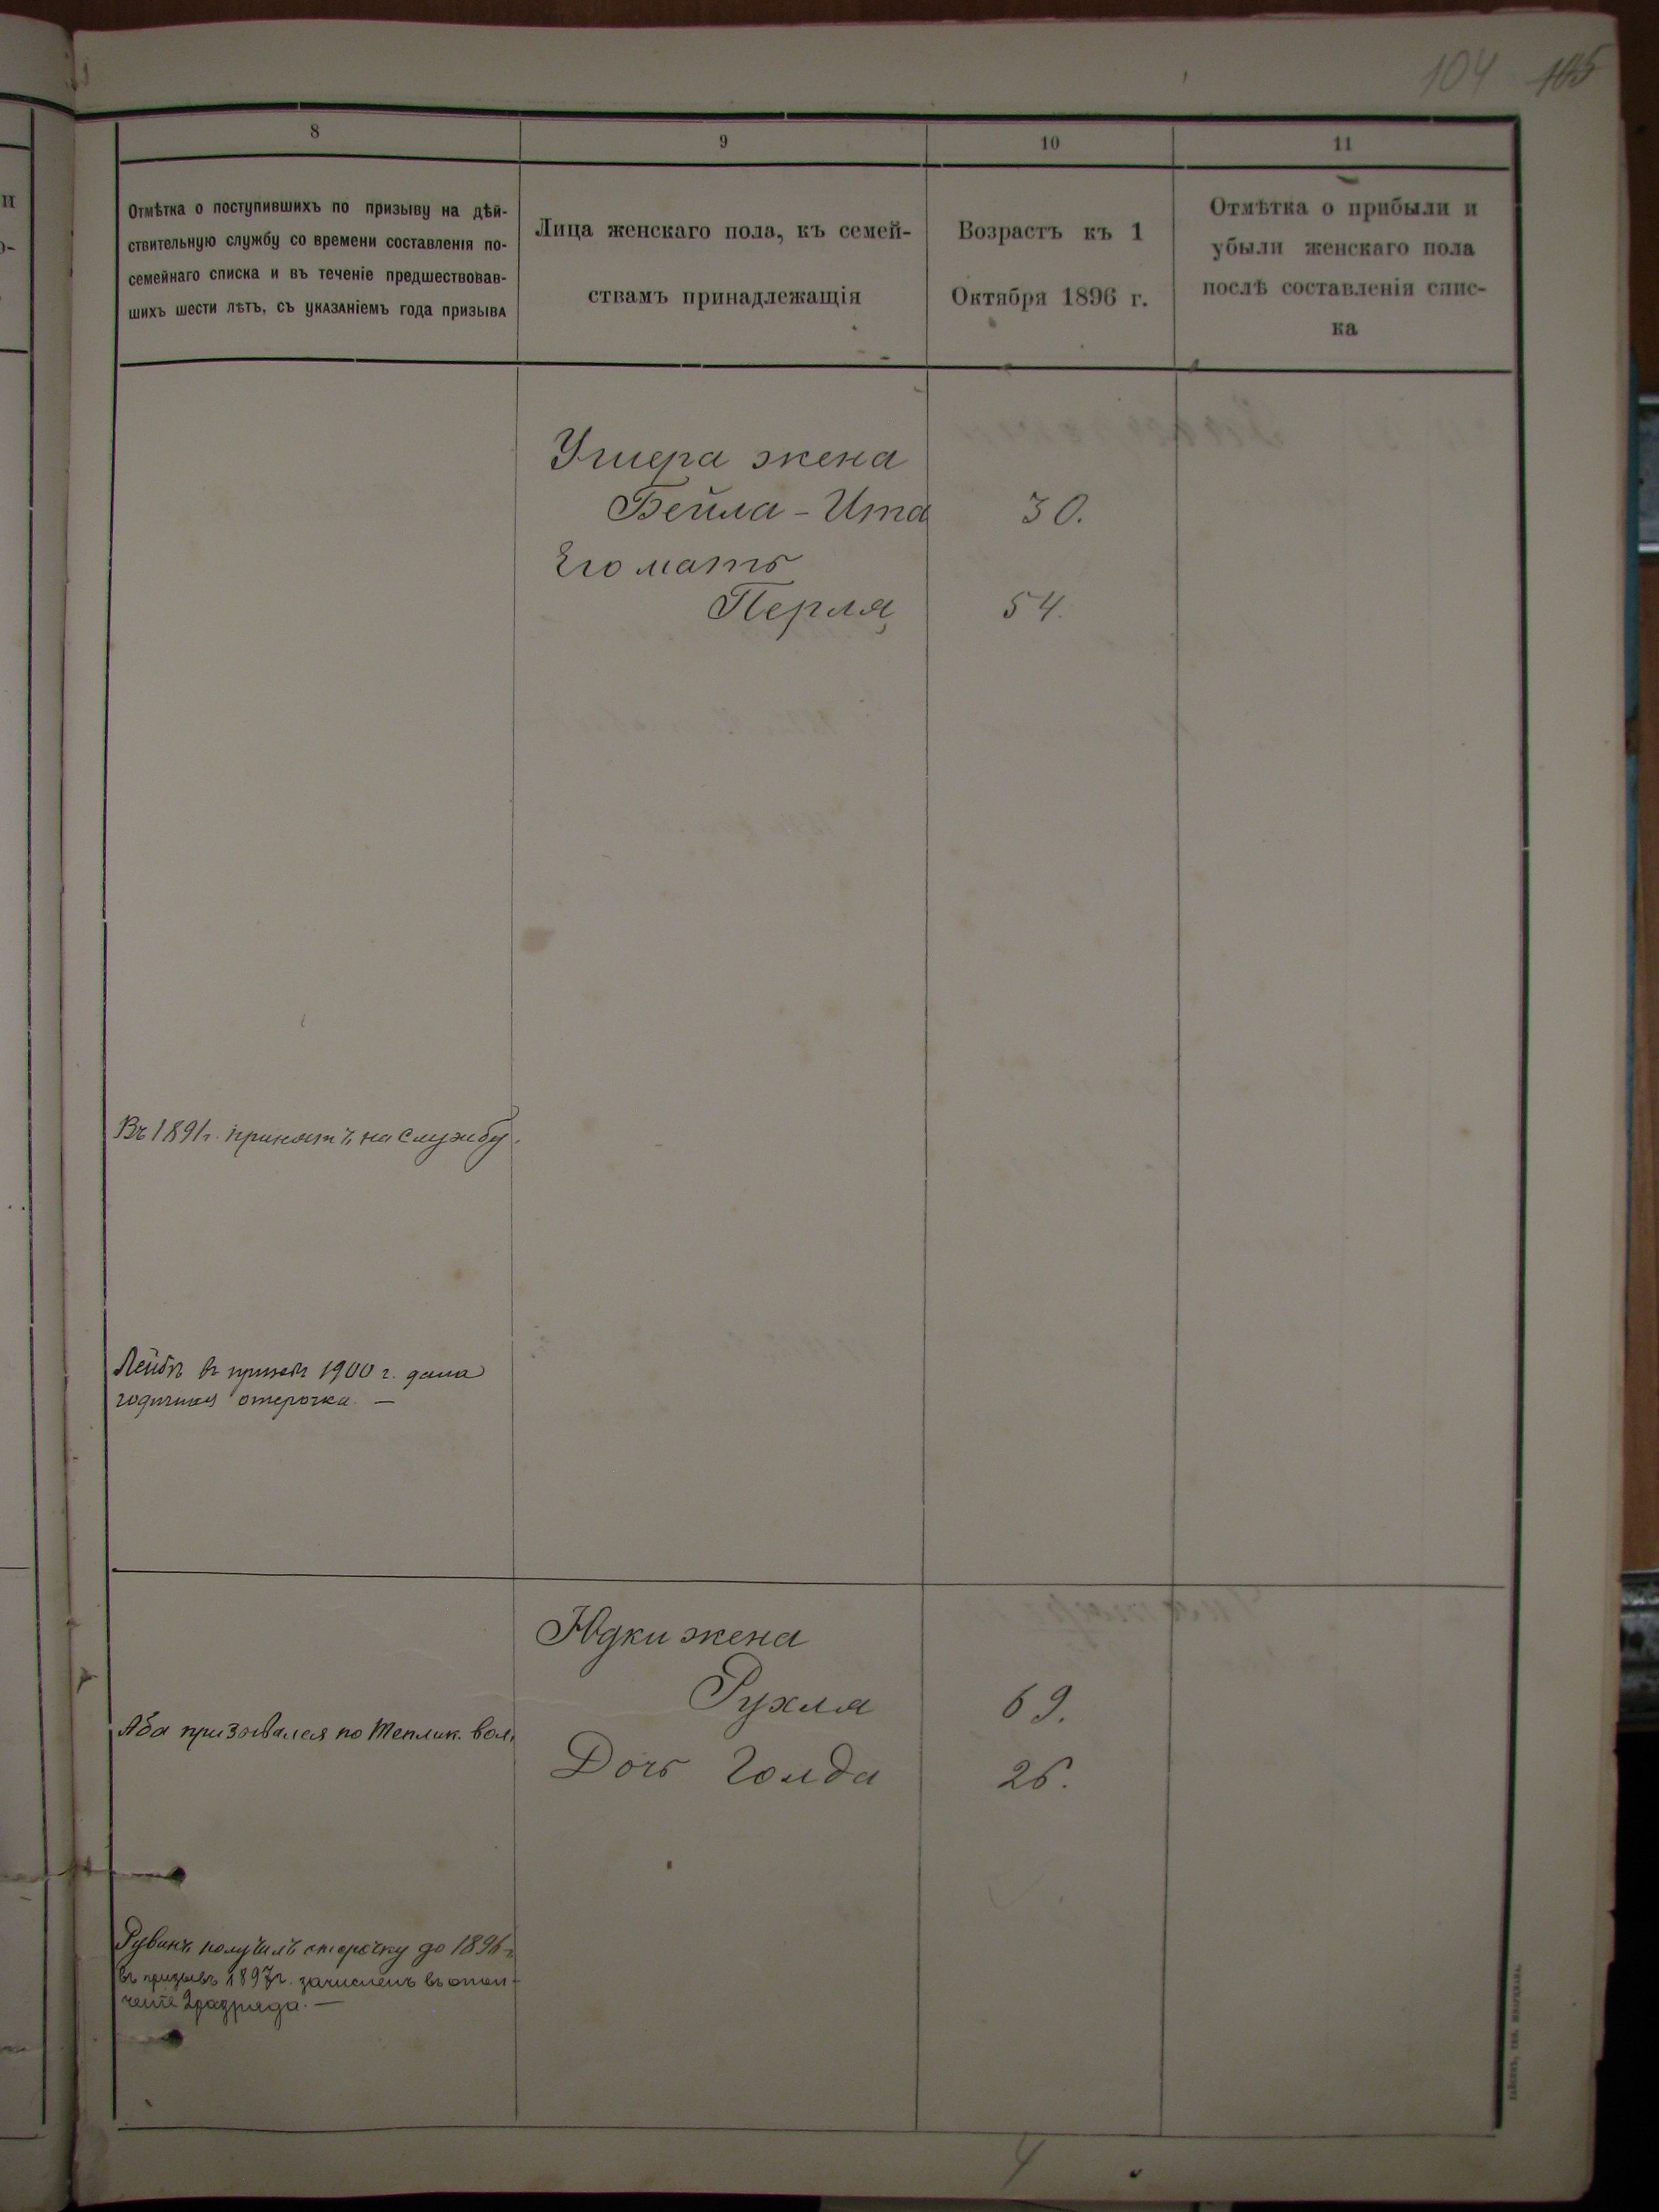 104 105
8
9
10
11
Отмѣтка о поступившихъ по призыву на дѣй-
ствительную службу со времени составленія по-
семейнаго списка и въ теченіе предшествовав-
шихъ шести лѣтъ, съ указаніемъ года призыва
Лица женскаго пола, къ семей-
ствамъ принадлежащія
Возрастъ къ 1
Октября 1896 г.
Отмѣтка о прибыли и
убыли женскаго пола
послѣ составленія спис-
ка
Ушера жена
Бейла-Ита 30.
Его мать
Перля 54.
Въ 1891 г. принятъ на службу.
Лейбѣ въ призывъ 1900 г. дана
годичная отсрочка. —
Юдки жена
Рухля 69.
Аба призывался по Теплик. вол.
Дочь Голда 26.
Рувинъ получилъ отсрочку до 1896 г.
въ призывъ 1897 г. зачисленъ въ опол-
ченіе 2 разряда. —